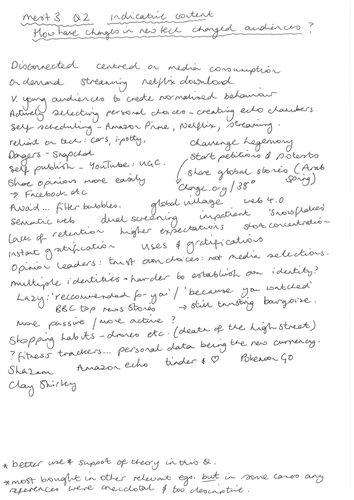 mest 3 Q2 indicative content
How have changes in new tech changed audiences?
Disconnected centred on media consumption
On demand streaming netflix download
V. young audiences to create normalised behaviour
Actively selecting personal choices - creating echo chambers
Self scheduling - Amazon Prime, Netflix, streaming.
reliant on tech: cars, spotify.
challenge hegemony
Dangers - Snapchat
start petitions &
Self publish - YouTube: UGC.
share global stories (Arab Spring)
Share opinions more easily
→ Facebook etc
Change.org / 38°
Avaid... filter bubbles. global village web 4.0
Semantic web dual screening impatient 'snowflakes'
Lack of retention higher expectations short concentration
Instant gratification uses & gratifications
Opinion leaders: trust own choices: not media selections.
multiple identities → harder to establish own identity?
Lazy: 'recommended for you' / 'because you watched'
BBC top news stories → still trusting
More passive / more active?
Shopping habits - drones etc. (death of the high street)
? fitness trackers... personal data being the new currency.
Shazam Amazon echo tinder & ♡ Pokemon GO
Clay Shirky
* better use & support of theory in this Q.
* most bought in other relevant egs. but in some cases any
references were anecdotal & too descriptive.